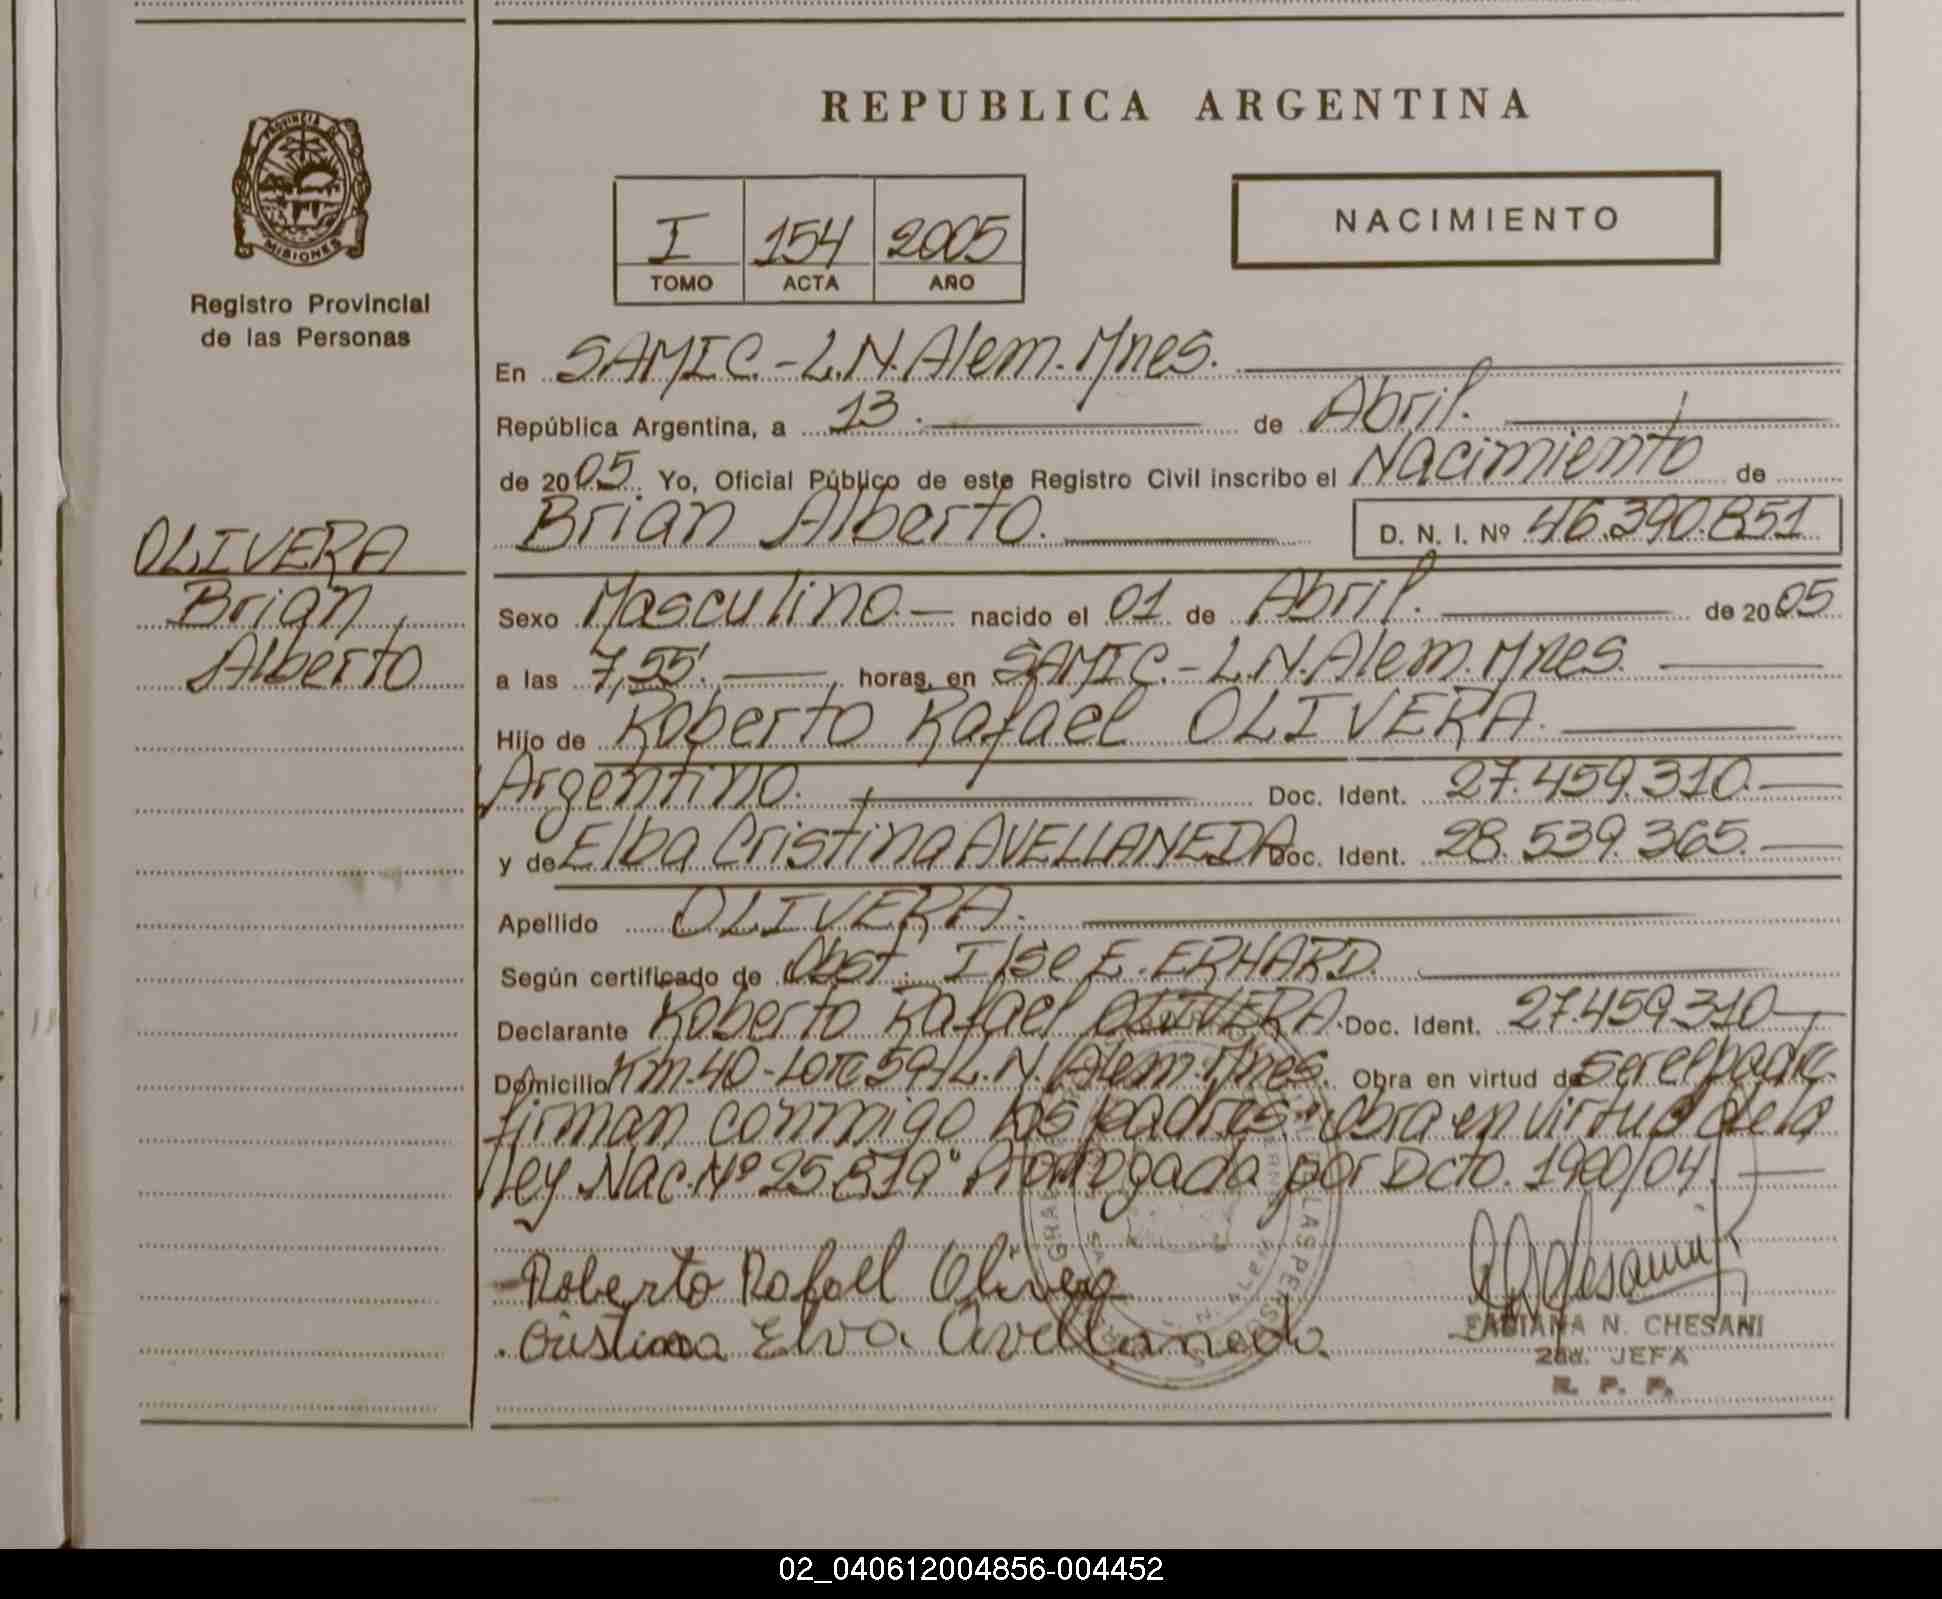 REPUBLICA ARGENTINA
PROVINCIA DE
MISIONES
Registro Provincial
de las Personas
I 154 2005
TOMO ACTA AÑO
NACIMIENTO
En SAMIC.-L.N.Alem.Mnes.
República Argentina, a 13. de Abril.
de 2005. Yo, Oficial Público de este Registro Civil inscribo el Nacimiento de
Brian Alberto. D. N. I. Nº 46.390.851
OLIVERA
Brian
Alberto
Sexo Masculino.- nacido el 01 de Abril. de 2005
a las 7,55'. horas, en SAMIC.-L.N.Alem.Mnes.
Hijo de Roberto Rafael OLIVERA.
Argentino. Doc. Ident. 27.459.310.
y de Elba Cristina AVELLANEDA Doc. Ident. 28.539.365.
Apellido OLIVERA.
Según certificado de Obst. Ilse E. ERHARD.
Declarante Roberto Rafael OLIVERA. Doc. Ident. 27.459.310
Domicilio Km.40-Lote 59-L.N.Alem.Mnes. Obra en virtud de ser el padre
firman conmigo los padres "obra en virtud de la
ley Nac.Nº 25.819" Prorrogada por Dcto. 1900/04.
Roberto Rafael Olivera
Cristina Elva Avellaneda
FABIANA N. CHESANI
2da. JEFA
R. P. P.
02_040612004856-004452